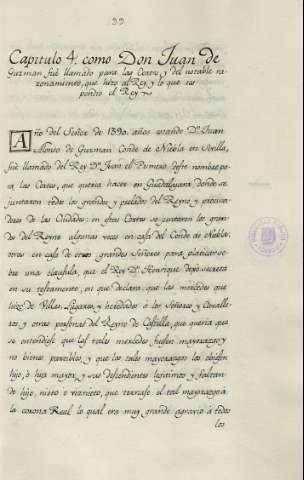 99
Capitulo 4. como Don Juan de
Guzman fué llamado para las Cortes, y del notable ra-
zonamiento, que hizo al Rey, y lo que res-
pondio el Rey
Año del Señor de 1390. años estando Dn. Juan
Alonso de Guzman Conde de Niebla en Sevilla,
fué llamado del Rey Dn. Juan el Primero deste nombre pa-
ra las Cortes, que queria hacer en Guadalajara, donde se
juntaron todos los grandes, y prelados del Reyno, y procura-
dores de las Ciudades: en estas Cortes se juntaron los gran-
des del Reyno algunas veces en casa del Conde de Niebla,
otras en casa de otros grandes Señores para platicar so-
bre una clausula, que el Rey Dn. Henrique dejó secreta
en su testamento, en que declara, que las mercedes que
hizo de Villas, Lugares, y heredades á los Señores y Cavalle-
ros, y otras personas del Reyno de Castilla, que queria que
se entendiese que las tales mercedes fuesen mayorazgos y
no bienes partibles, y que los tales mayorazgos los obiesen
hijo, ó hija mayor, y sus descendientes legitimos y faltan-
do hijo, nieto ó viznieto, que tornase el tal mayorazgo á
la corona Real lo qual era muy grande agravio á todos
los